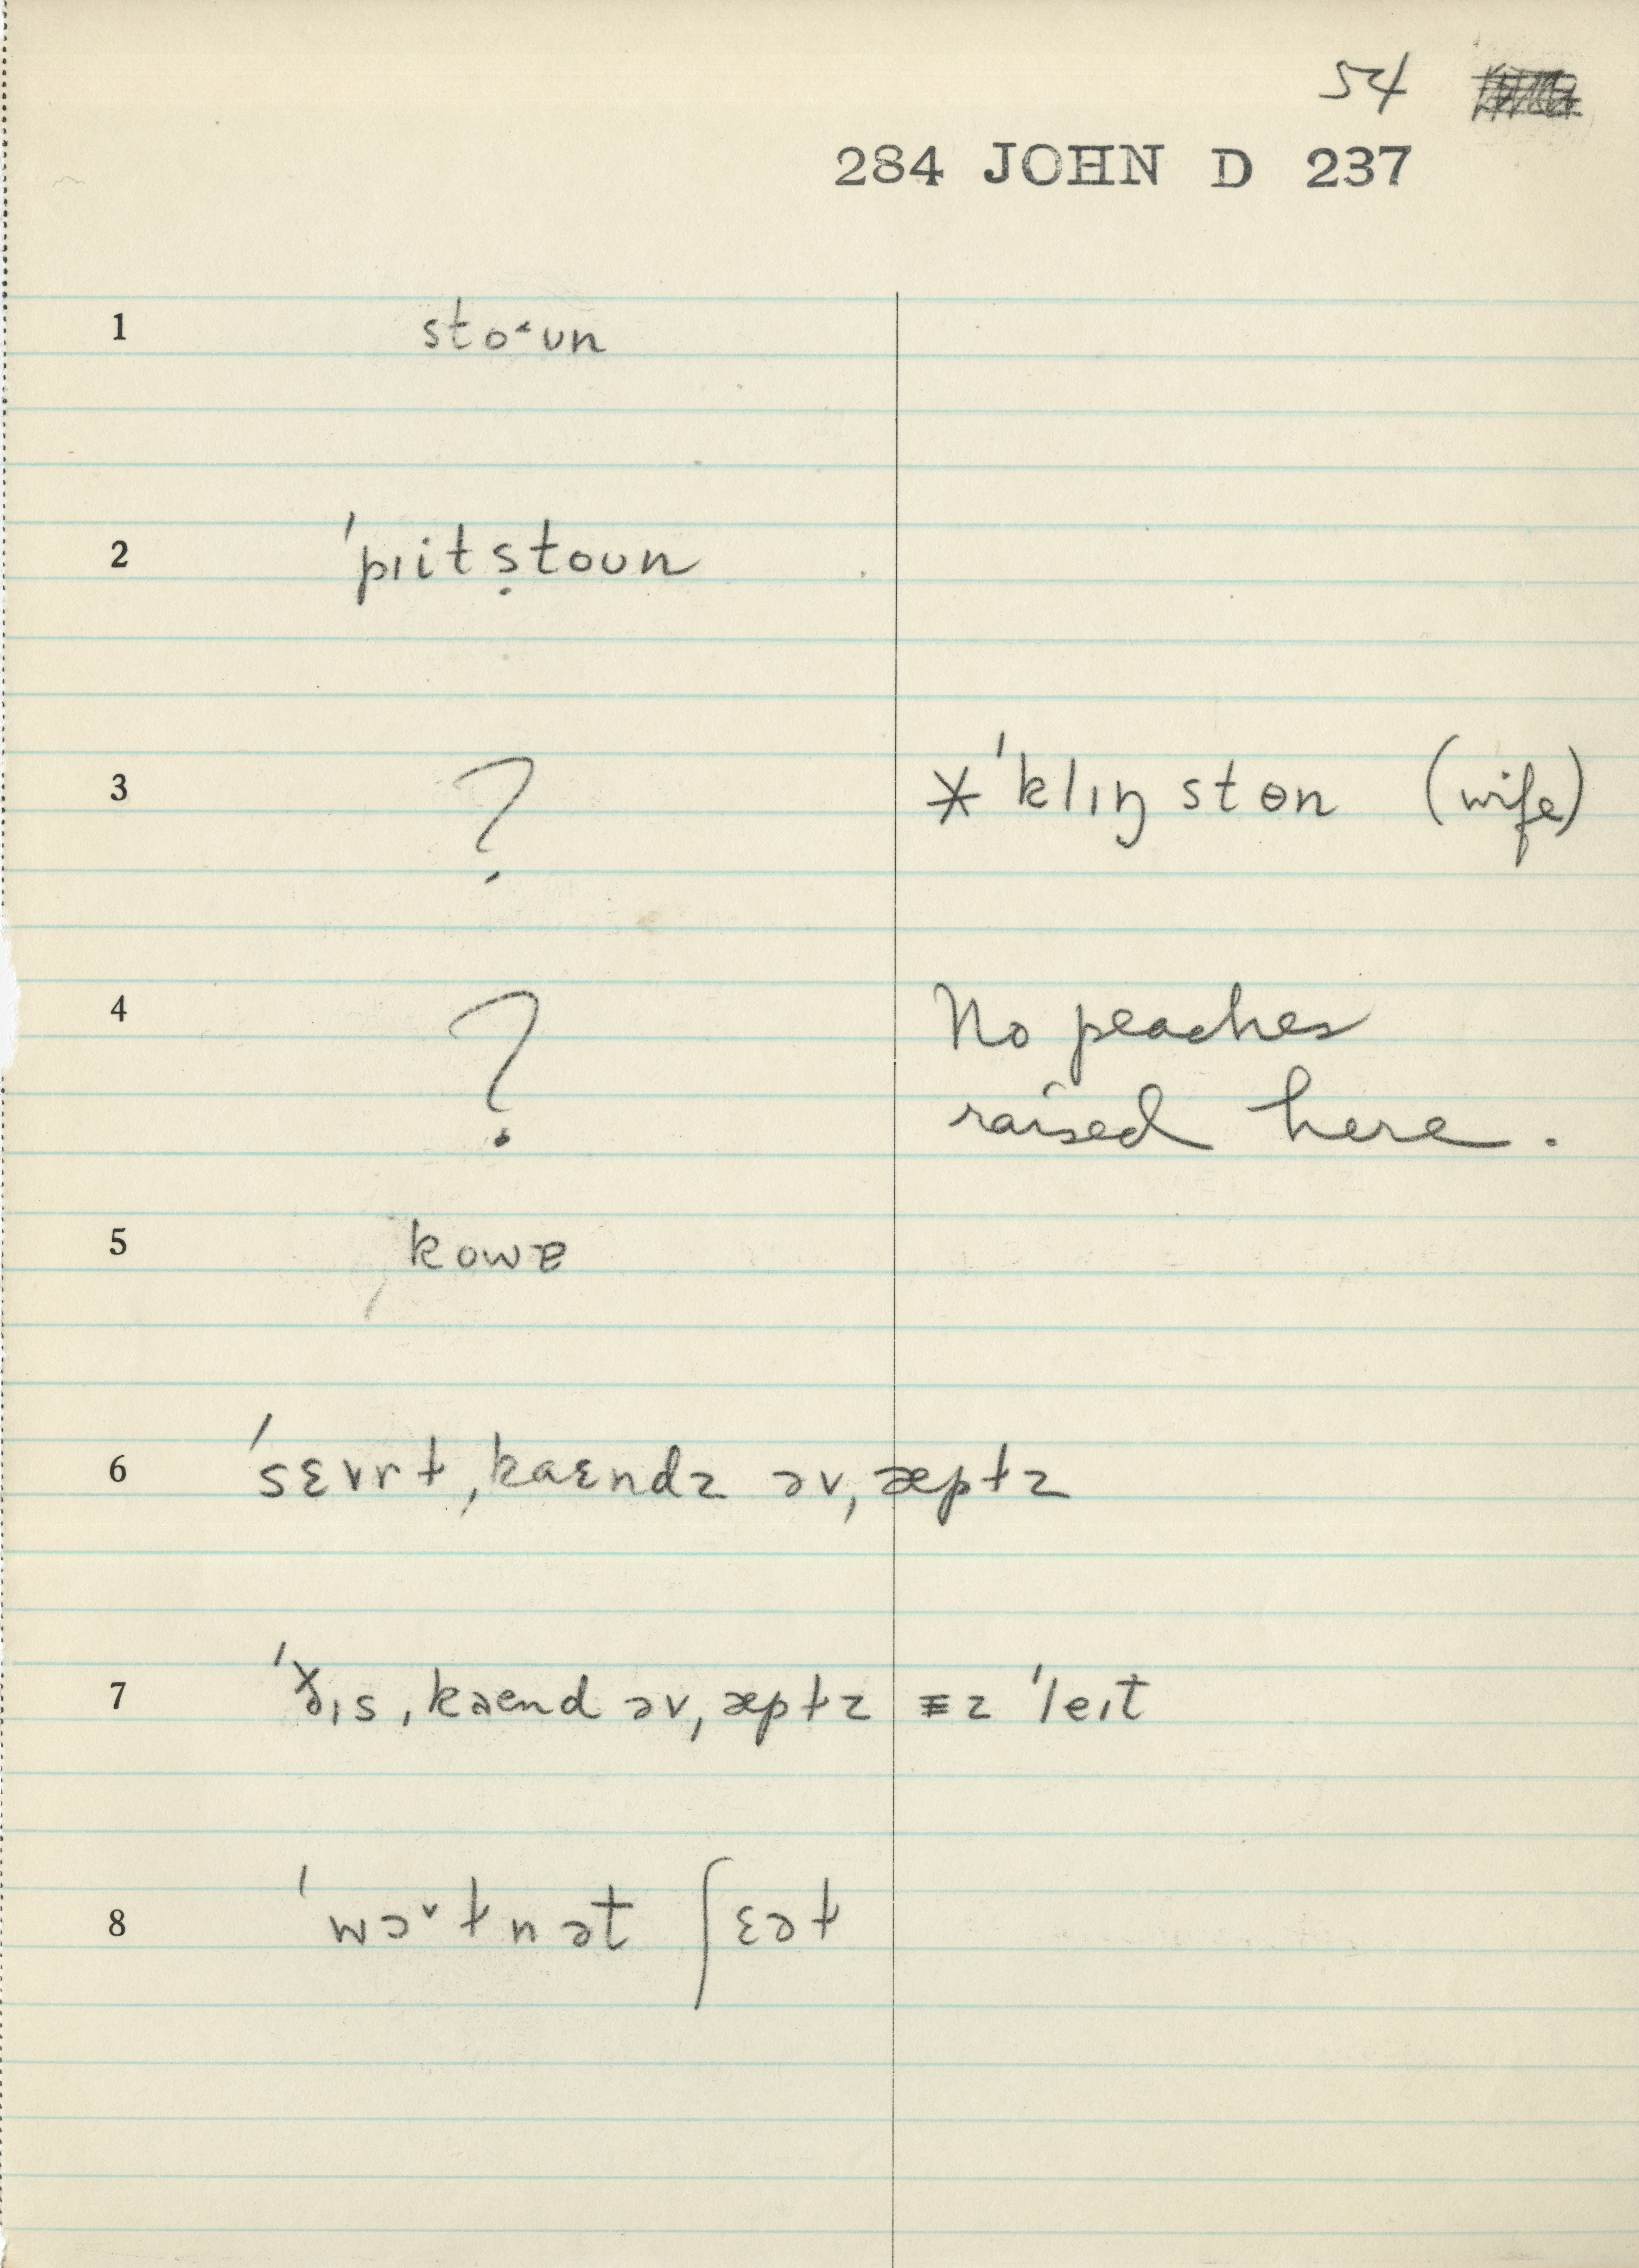 54
284 JOHN D 237
1 stoˑᴜn
2 ˈpɪitṣtoᴜn
3 ? * ˈklɪŋ stɵn (wife)
4 ? No peaches
raised here.
5 kowɐ
6 ˈsɛvrɫ ˌkaɛndz əv ˌæpɫz
7 ˈðɪs ˌkaend əv ˌæpɫz ᵻz ˈleɪt
8 ˈwɔ˅ɫnət ʃɛəɫ